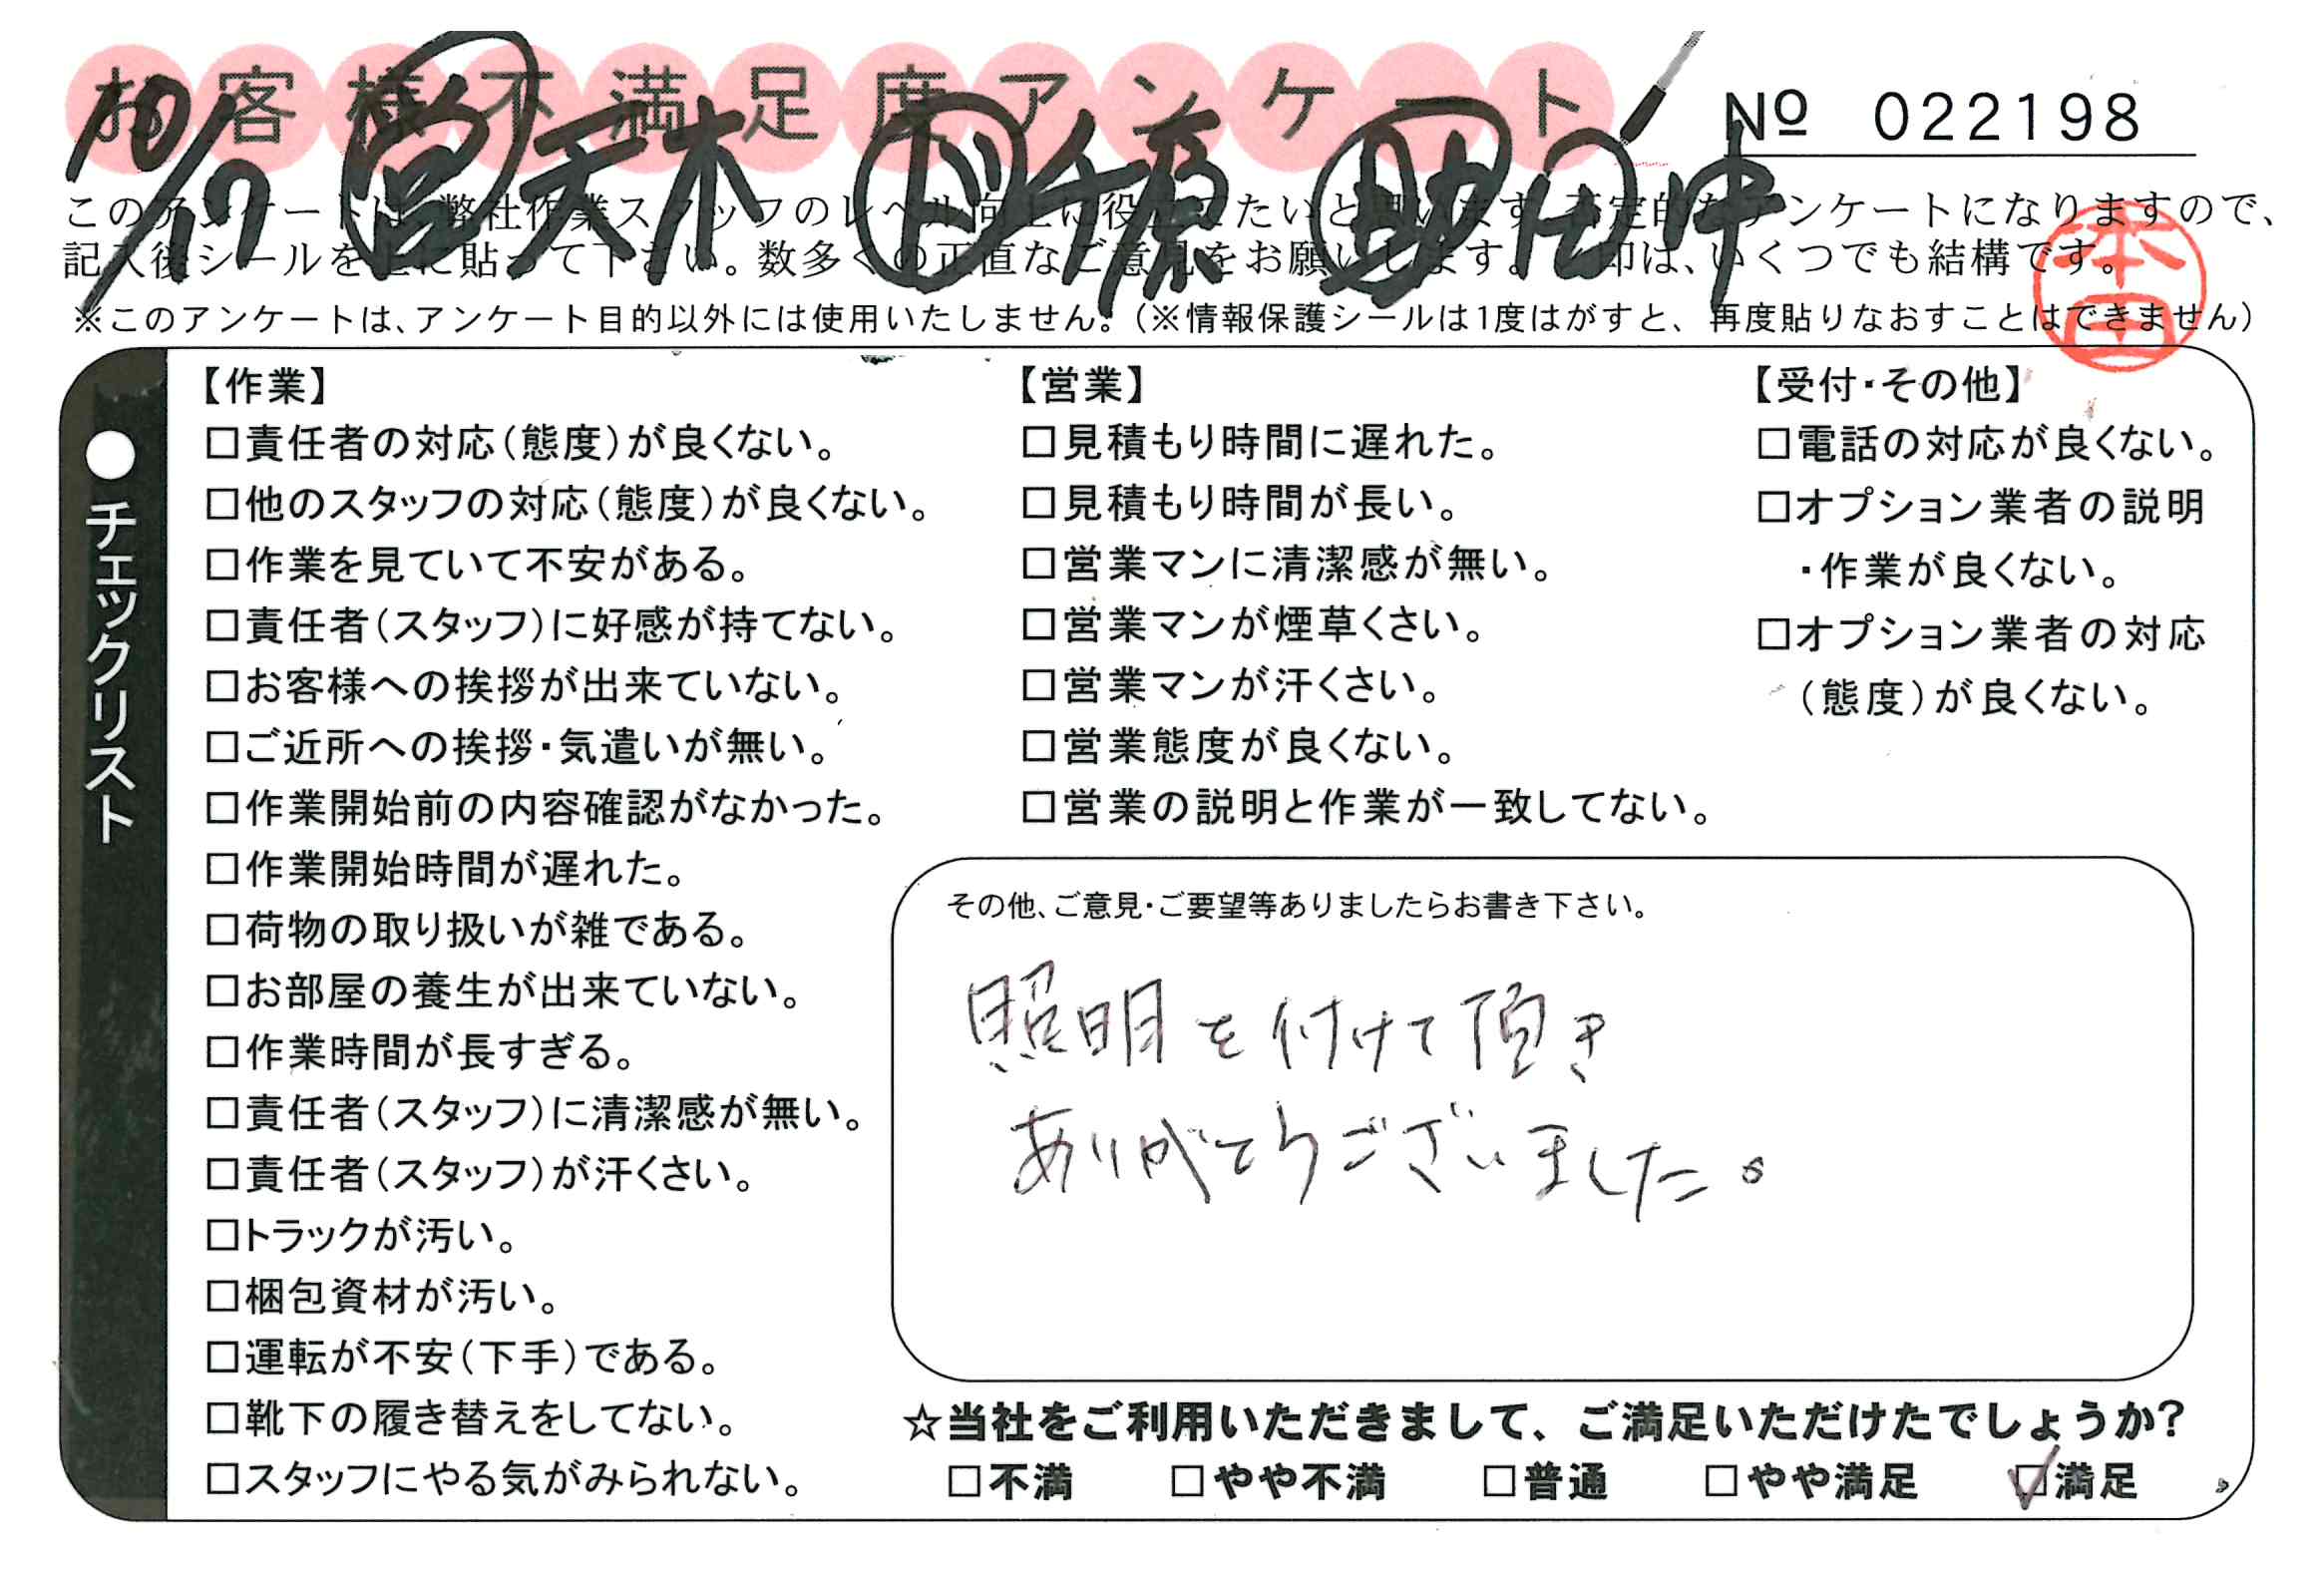 お客様不満足度アンケート
Nº 022198
10/17 営 天木 ド 千原 助 田中
このアンケートは、弊社作業スタッフのレベル向上に役立てたいと思います。否定的なアンケートになりますので、
記入後シールを上に貼って下さい。数多くの正直なご意見をお願いします。 印は、いくつでも結構です。
本田
※このアンケートは、アンケート目的以外には使用いたしません。（※情報保護シールは1度はがすと、再度貼りなおすことはできません）
●チェックリスト
【作業】
□責任者の対応（態度）が良くない。
□他のスタッフの対応（態度）が良くない。
□作業を見ていて不安がある。
□責任者（スタッフ）に好感が持てない。
□お客様への挨拶が出来ていない。
□ご近所への挨拶・気遣いが無い。
□作業開始前の内容確認がなかった。
□作業開始時間が遅れた。
□荷物の取り扱いが雑である。
□お部屋の養生が出来ていない。
□作業時間が長すぎる。
□責任者（スタッフ）に清潔感が無い。
□責任者（スタッフ）が汗くさい。
□トラックが汚い。
□梱包資材が汚い。
□運転が不安（下手）である。
□靴下の履き替えをしてない。
□スタッフにやる気がみられない。
【営業】
□見積もり時間に遅れた。
□見積もり時間が長い。
□営業マンに清潔感が無い。
□営業マンが煙草くさい。
□営業マンが汗くさい。
□営業態度が良くない。
□営業の説明と作業が一致してない。
【受付・その他】
□電話の対応が良くない。
□オプション業者の説明
・作業が良くない。
□オプション業者の対応
（態度）が良くない。
その他、ご意見・ご要望等ありましたらお書き下さい。
照明を付けて頂き
ありがとうございました。
☆当社をご利用いただきまして、ご満足いただけたでしょうか?
□不満 □やや不満 □普通 □やや満足 ☑満足